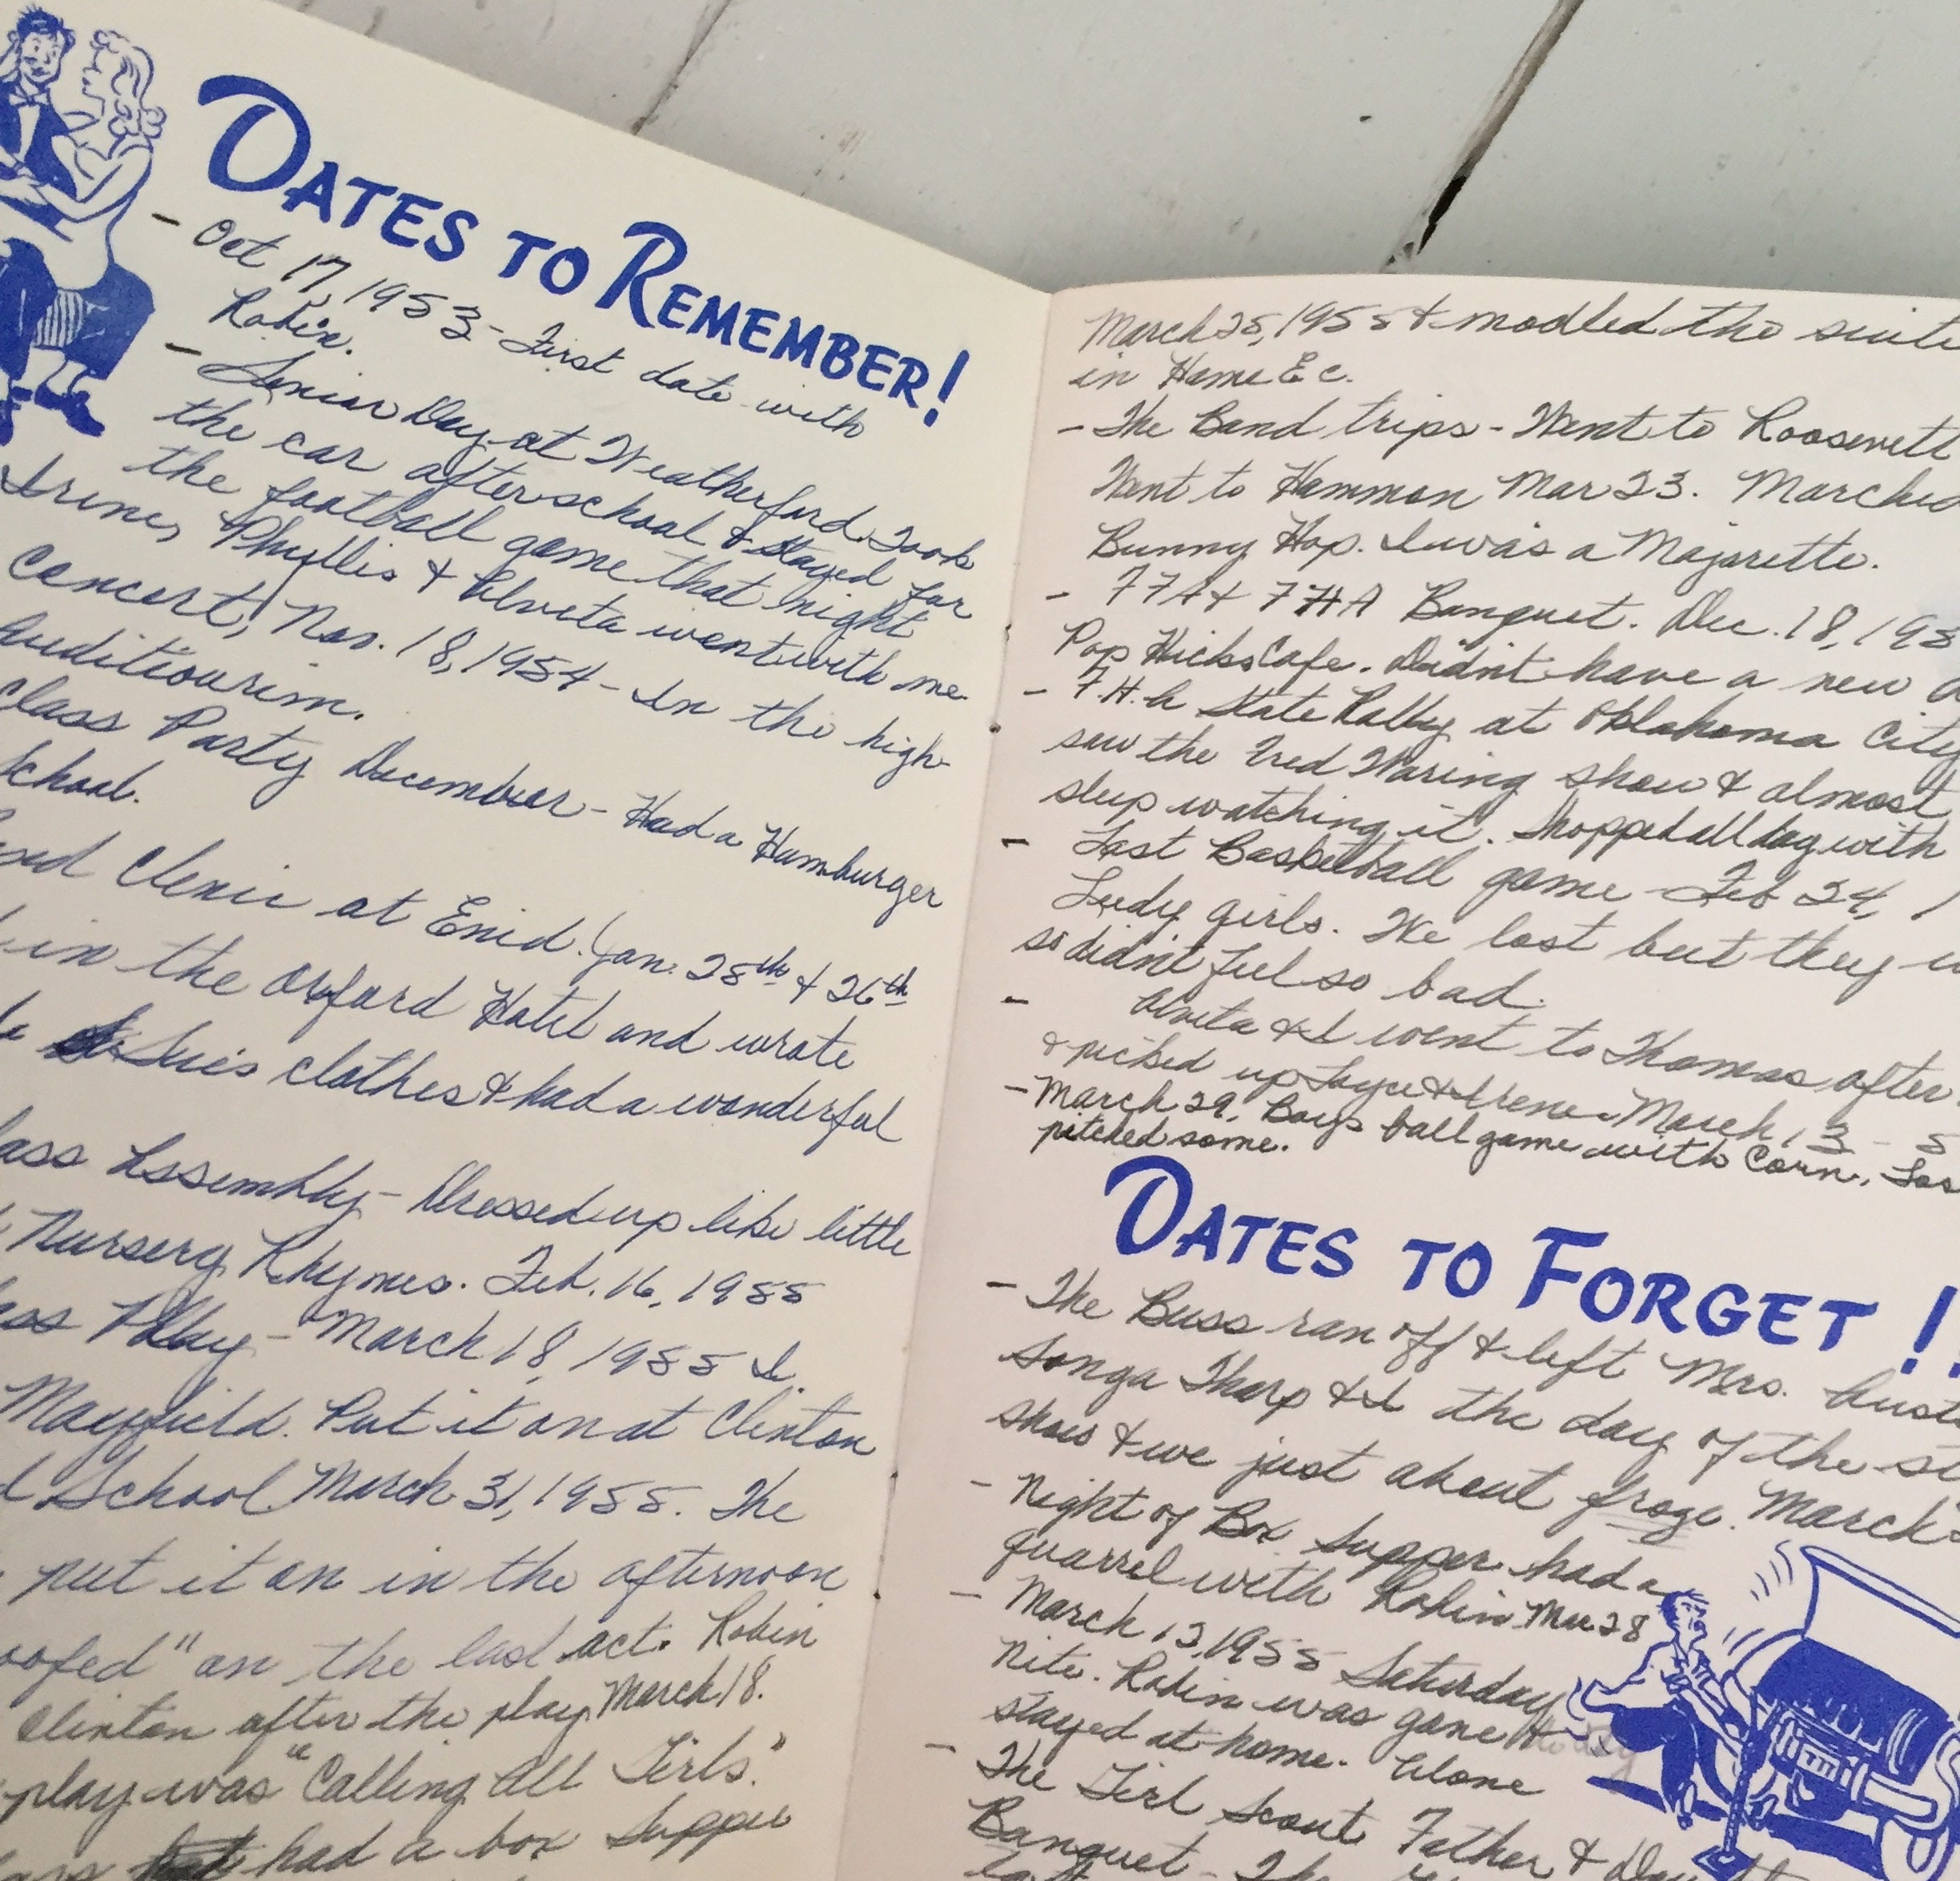 DATES TO REMEMBER!
- Oct 17, 1953 - First date with
Robin.
- Senior Day at Weatherford. Took
the car after school & stayed for
the football game that night
Irine, Phyllis & Alveta went with me.
Concert, Nov. 18, 1954 - In the high-
auditiourim.
Class Party December - Had a Hamburger
School.
Clenic at Enid. Jan. 25th & 26th
in the Oxford Hotel and wrote
Sue's clothes & had a wonderful
Assembly - Dressed up like little
Nursery Rhymes. Feb. 16, 1955
Play - March 18, 1955 I.
Mayfield. Put it on at Clinton
School March 31, 1955. The
put it on in the afternoon
oofed" on the last act. Robin
Clinton after the play March 18.
play was "Calling All Girls."
had a box Supper
March 25, 1955 & modled the suite
in Home Ec.
- The Band trips - Went to Roosevelt
Went to Hammon Mar 23. Marched
Bunny Hop. I was a Majorette.
- FFA & FHA Banquet. Dec. 18, 195
Pop Hicks Cafe. Didn't have a new
- F.H.A State Rally at Oklahoma City
saw the Fred Waring show & almost
sleep watching it. Shopped all day with
- Last Basketball game - Feb 24, 1
Leedy girls. We lost but they
so didn't feel so bad.
- Alveta & I went to Thomas after
& picked up Joyce & Irene - March 13 - 5
- March 29, Boys ball game with Corn. Los
pitched some.
DATES TO FORGET!!
- The Buss ran off & left Mrs.
Songa Tharp & I the day of the st
show & we just about froze. March
- Night of Box Supper had a
quarrel with Robin Mar. 28
- March 12, 1955 Saturday
Nite. Robin was gone &
stayed at home. Alone
- The Girl Scout Father &
Banquet - The